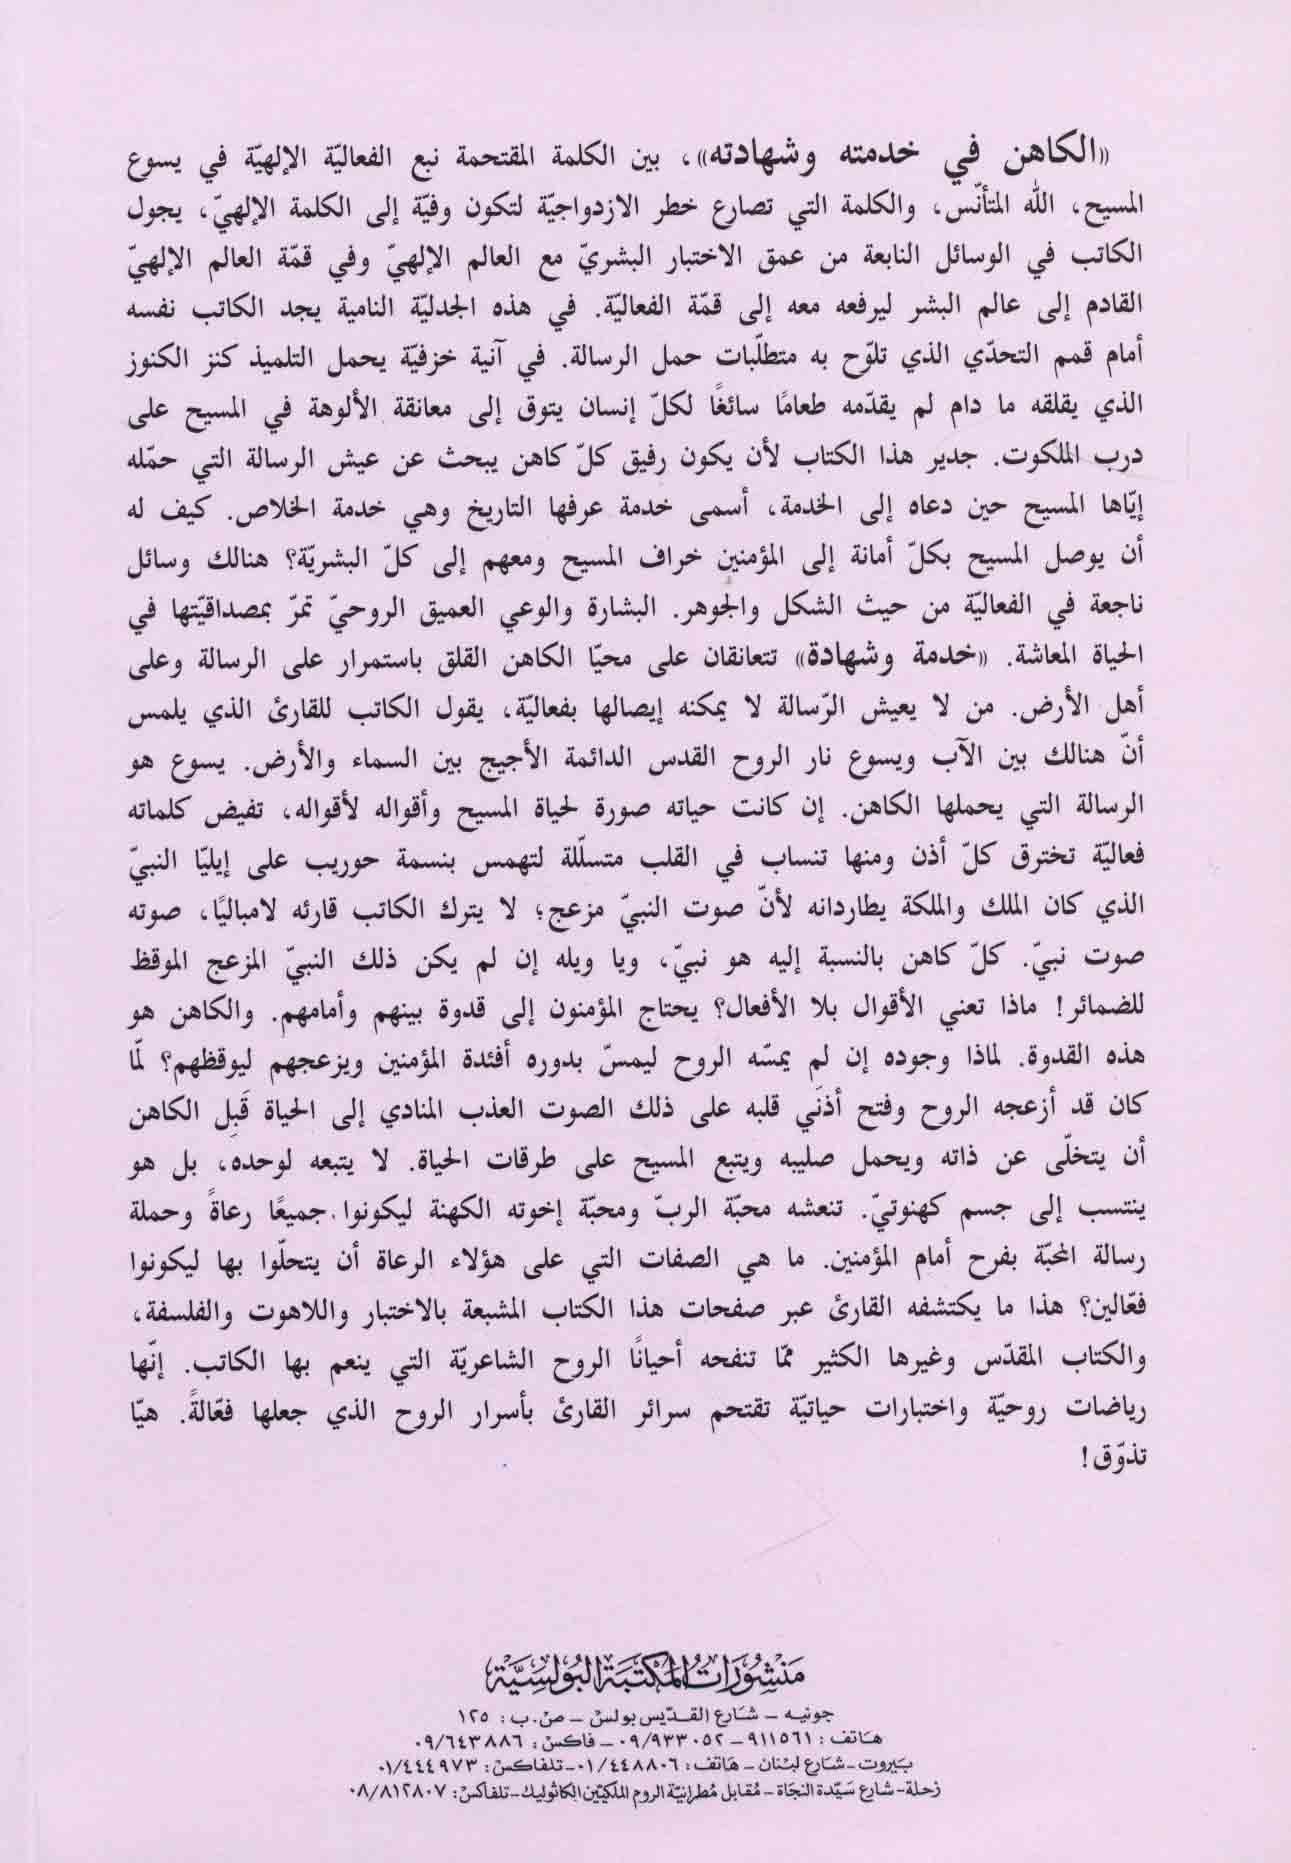 «الكاهن في خدمته وشهادته»، بين الكلمة المقتحمة نبع الفعاليّة الإلهيّة في يسوع
المسيح، الله المتأنّس، والكلمة التي تصارع خطر الازدواجيّة لتكون وفيّة إلى الكلمة الإلهيّ، يجول
الكاتب في الوسائل النابعة من عمق الاختبار البشريّ مع العالم الإلهيّ وفي قمّة العالم الإلهيّ
القادم إلى عالم البشر ليرفعه معه إلى قمّة الفعاليّة. في هذه الجدليّة النامية يجد الكاتب نفسه
أمام قمم التحدّي الذي تلوّح به متطلّبات حمل الرسالة. في آنية خزفيّة يحمل التلميذ كنز الكنوز
الذي يقلقه ما دام لم يقدّمه طعامًا سائغًا لكلّ إنسان يتوق إلى معانقة الألوهة في المسيح على
درب الملكوت. جدير هذا الكتاب لأن يكون رفيق كلّ كاهن يبحث عن عيش الرسالة التي حمّله
إيّاها المسيح حين دعاه إلى الخدمة، أسمى خدمة عرفها التاريخ وهي خدمة الخلاص. كيف له
أن يوصل المسيح بكلّ أمانة إلى المؤمنين خراف المسيح ومعهم إلى كلّ البشريّة؟ هنالك وسائل
ناجعة في الفعاليّة من حيث الشكل والجوهر. البشارة والوعي العميق الروحيّ تمرّ بمصداقيّتها في
الحياة المعاشة. «خدمة وشهادة» تتعانقان على محيّا الكاهن القلق باستمرار على الرسالة وعلى
أهل الأرض. من لا يعيش الرّسالة لا يمكنه إيصالها بفعاليّة، يقول الكاتب للقارئ الذي يلمس
أنّ هنالك بين الآب ويسوع نار الروح القدس الدائمة الأجيج بين السماء والأرض. يسوع هو
الرسالة التي يحملها الكاهن. إن كانت حياته صورة لحياة المسيح وأقواله لأقواله، تفيض كلماته
فعاليّة تخترق كلّ أذن ومنها تنساب في القلب متسلّلة لتهمس بنسمة حوريب على إيليّا النبيّ
الذي كان الملك والملكة يطاردانه لأنّ صوت النبيّ مزعج؛ لا يترك الكاتب قارئه لامباليًا، صوته
صوت نبيّ. كلّ كاهن بالنسبة إليه هو نبيّ، ويا ويله إن لم يكن ذلك النبيّ المزعج الموقظ
للضمائر! ماذا تعني الأقوال بلا الأفعال؟ يحتاج المؤمنون إلى قدوة بينهم وأمامهم. والكاهن هو
هذه القدوة. لماذا وجوده إن لم يمسّه الروح ليمسّ بدوره أفئدة المؤمنين ويزعجهم ليوقظهم؟ لمّا
كان قد أزعجه الروح وفتح أذنَي قلبه على ذلك الصوت العذب المنادي إلى الحياة قَبِل الكاهن
أن يتخلّى عن ذاته ويحمل صليبه ويتبع المسيح على طرقات الحياة. لا يتبعه لوحده، بل هو
ينتسب إلى جسم كهنوتيّ. تنعشه محبّة الربّ ومحبّة إخوته الكهنة ليكونوا جميعًا رعاةً وحملة
رسالة المحبّة بفرح أمام المؤمنين. ما هي الصفات التي على هؤلاء الرعاة أن يتحلّوا بها ليكونوا
فعّالين؟ هذا ما يكتشفه القارئ عبر صفحات هذا الكتاب المشبعة بالاختبار واللاهوت والفلسفة،
والكتاب المقدّس وغيرها الكثير ممّا تنفحه أحيانًا الروح الشاعريّة التي ينعم بها الكاتب. إنّها
رياضات روحيّة واختبارات حياتيّة تقتحم سرائر القارئ بأسرار الروح الذي جعلها فعّالةً. هيّا
تذوّق!
منشورات المكتبة البولسيّة
جونيه – شارع القدّيس بولس – ص.ب: ١٢٥
هاتف: ٩١١٥٦١ – ٠٩/٩٣٣٠٥٢ – فاكس: ٠٩/٦٤٣٨٨٦
بيروت – شارع لبنان – هاتف: ٠١/٤٤٨٨٠٦ – تلفاكس: ٠١/٤٤٤٩٧٣
زحلة – شارع سيّدة النجاة – مقابل مطرانيّة الروم الملكيّين الكاثوليك – تلفاكس: ٠٨/٨١٢٨٠٧